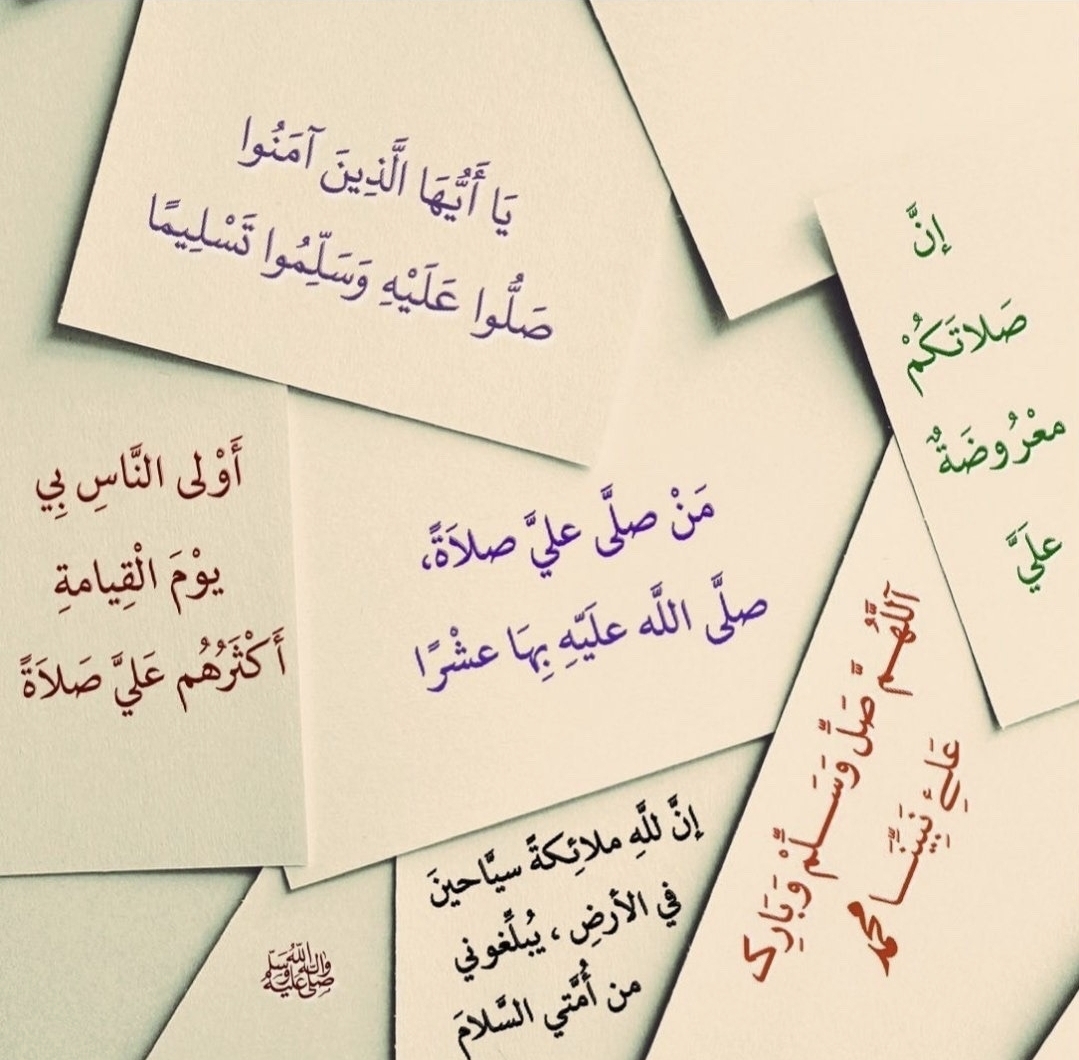 يَا أَيُّهَا الَّذِينَ آمَنُوا
صَلُّوا عَلَيْهِ وَسَلِّمُوا تَسْلِيمًا
إنَّ
صَلاتَكُمْ
معْرُوضَةٌ
علَيَّ
أَوْلى النَّاسِ بِي
يوْمَ الْقِيامةِ
أَكْثَرُهُم عَليَّ صَلاَةً
مَنْ صلَّى عليَّ صلاَةً،
صلَّى اللَّه علَيّهِ بِهَا عشْرًا
آللَّهُـم صَلِّ وَسَـــلِّمْ وَبَارِك
عَلےٰ نَبِيِّنَـــا محمد
إنَّ للَّهِ ملائِكةً سيَّاحينَ
في الأرضِ ، يُبلِّغوني
من أُمَّتي السَّلامَ
ﷺ